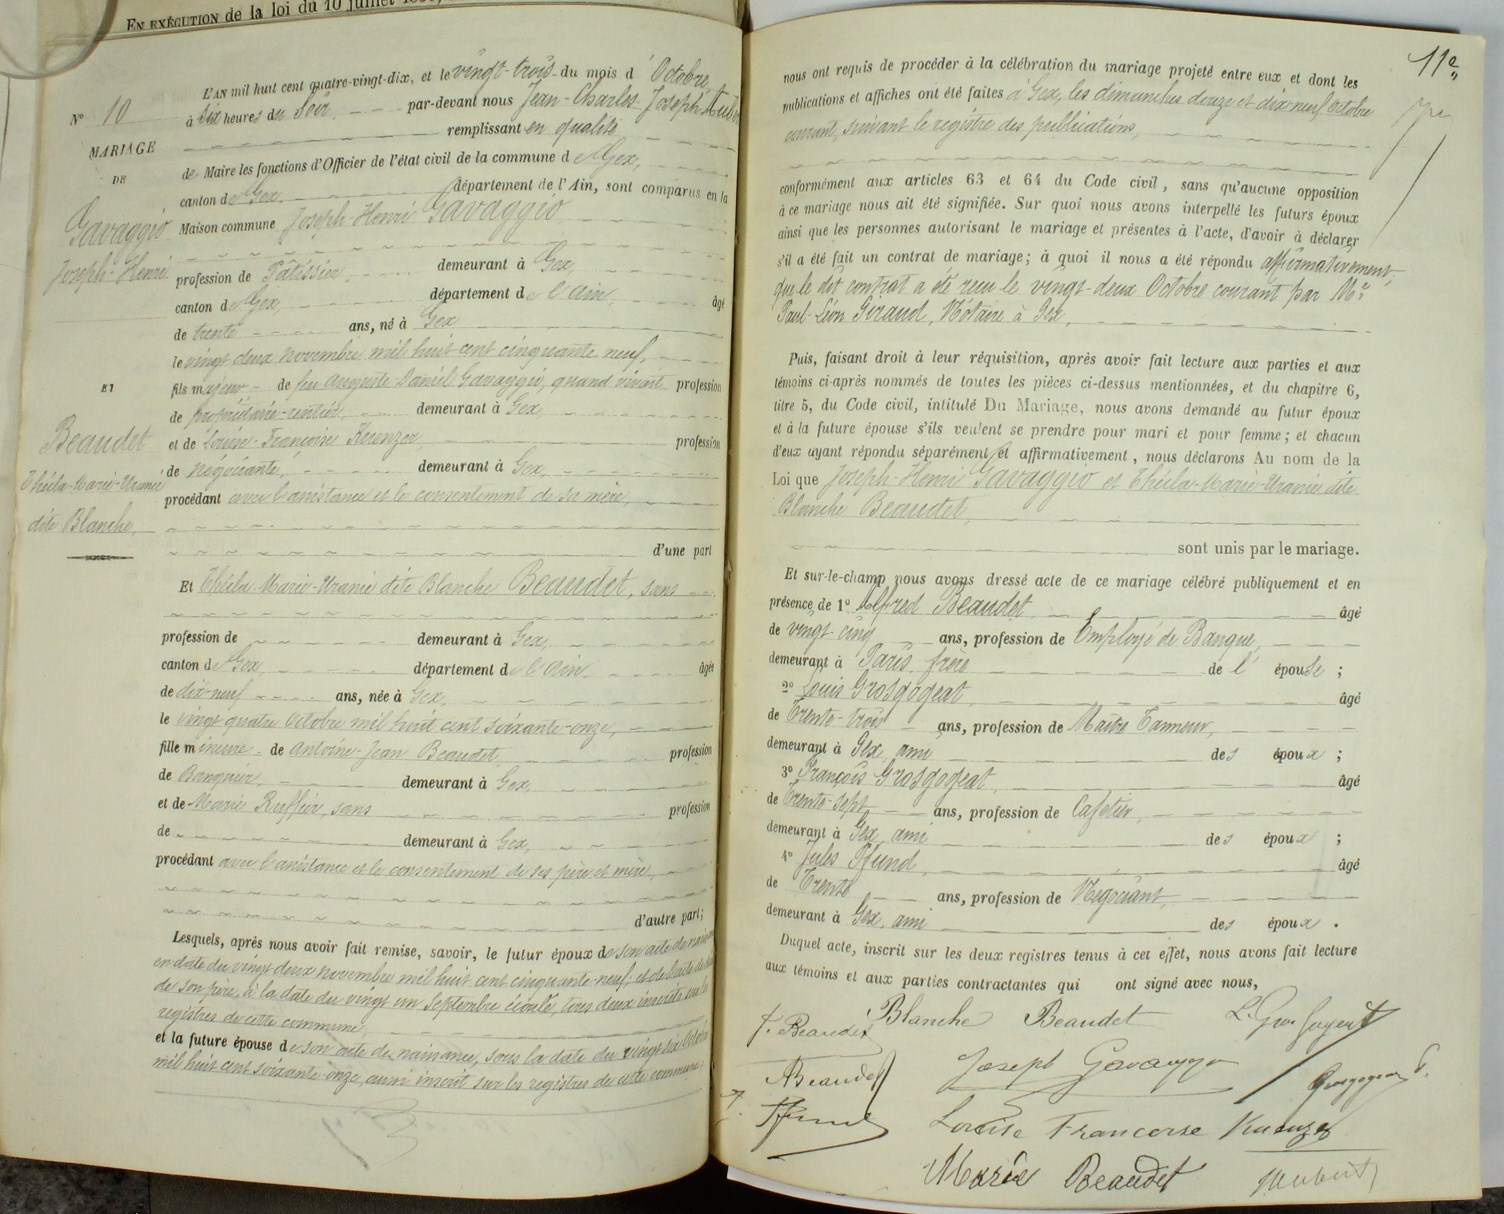 EN EXÉCUTION de la loi du 10 juillet
L'AN mil huit cent quatre-vingt-dix, et le vingt-trois du mois d'Octobre,
à Six heures du Soir par-devant nous Jean-Charles-Joseph
Nº 10 remplissant en qualité
MARIAGE
DE
de Maire les fonctions d'Officier de l'état civil de la commune de Gex,
canton de Gex, département de l'Ain, sont comparus en la
Gavaggio Maison commune Joseph Henri Gavaggio
Joseph-Henri profession de Pâtissier demeurant à Gex,
canton de Gex, département de l'Ain, âgé
de trente ans, né à Gex
le vingt deux novembre mil huit cent cinquante neuf,
ET fils majeur de feu Auguste Daniel Gavaggio, quand vivant profession
de propriétaire-rentier demeurant à Gex,
Beaudet et de Louise-Françoise profession
Thécla-Marie-Uranie de négociante, demeurant à Gex,
procédant avec l'assistance et le consentement de sa mère,
dite Blanche,
d'une part
Et Thécla-Marie-Uranie dite Blanche Beaudet, sans
profession de demeurant à Gex,
canton de Gex, département de l'Ain, âgée
de dix-neuf ans, née à Gex,
le vingt quatre Octobre mil huit cent soixante-onze,
fille mineure de Antoine-Jean Beaudet, profession
de Banquier, demeurant à Gex,
et de Marie Ruffier, sans profession
de demeurant à Gex,
procédant avec l'assistance et le consentement de ses père et mère,
d'autre part;
Lesquels, après nous avoir fait remise, savoir, le futur époux de son acte de
en date du vingt deux novembre mil huit cent cinquante-neuf, et de l'acte de
de son père, à la date du vingt un Septembre écoulé, tous deux inscrits sur les
registres de cette commune
et la future épouse de son acte de naissance, sous la date du vingt six Octobre
mil huit cent soixante-onze, aussi inscrit sur les registres de cette commune;
11e
nous ont requis de procéder à la célébration du mariage projeté entre eux et dont les
publications et affiches ont été faites à Gex, les dimanches douze et dix-neuf Octobre
courant, suivant le registre des publications,
conformément aux articles 63 et 64 du Code civil, sans qu'aucune opposition
à ce mariage nous ait été signifiée. Sur quoi nous avons interpellé les futurs époux
ainsi que les personnes autorisant le mariage et présentes à l'acte, d'avoir à déclarer
s'il a été fait un contrat de mariage; à quoi il nous a été répondu affirmativement,
que le dit contrat a été reçu le vingt-deux Octobre courant par Me
Paul-Léon Giraud, Notaire à Gex,
Puis, faisant droit à leur réquisition, après avoir fait lecture aux parties et aux
témoins ci-après nommés de toutes les pièces ci-dessus mentionnées, et du chapitre 6,
titre 5, du Code civil, intitulé Du Mariage, nous avons demandé au futur époux
et à la future épouse s'ils veulent se prendre pour mari et pour femme; et chacun
d'eux ayant répondu séparément et affirmativement, nous déclarons Au nom de la
Loi que Joseph-Henri Gavaggio et Thécla-Marie-Uranie dite
Blanche Beaudet,
sont unis par le mariage.
Et sur-le-champ nous avons dressé acte de ce mariage célébré publiquement et en
présence de 1º Alfred Beaudet âgé
de vingt-cinq ans, profession de Employé de Banque,
demeurant à Paris, frère de l'épouse;
2º Louis Grosgogeat, âgé
de Trente-trois ans, profession de Maître Tanneur,
demeurant à Gex, ami des époux;
3º François Grosgogeat, âgé
de Trente-sept ans, profession de Cafetier,
demeurant à Gex, ami des époux;
4º Jules Pfund, âgé
de Trente ans, profession de Négociant,
demeurant à Gex, ami des époux.
Duquel acte, inscrit sur les deux registres tenus à cet effet, nous avons fait lecture
aux témoins et aux parties contractantes qui ont signé avec nous,
Beaudet Blanche Beaudet
ABeaudet Joseph Gavaggio
Louise Francoise
Marie Beaudet